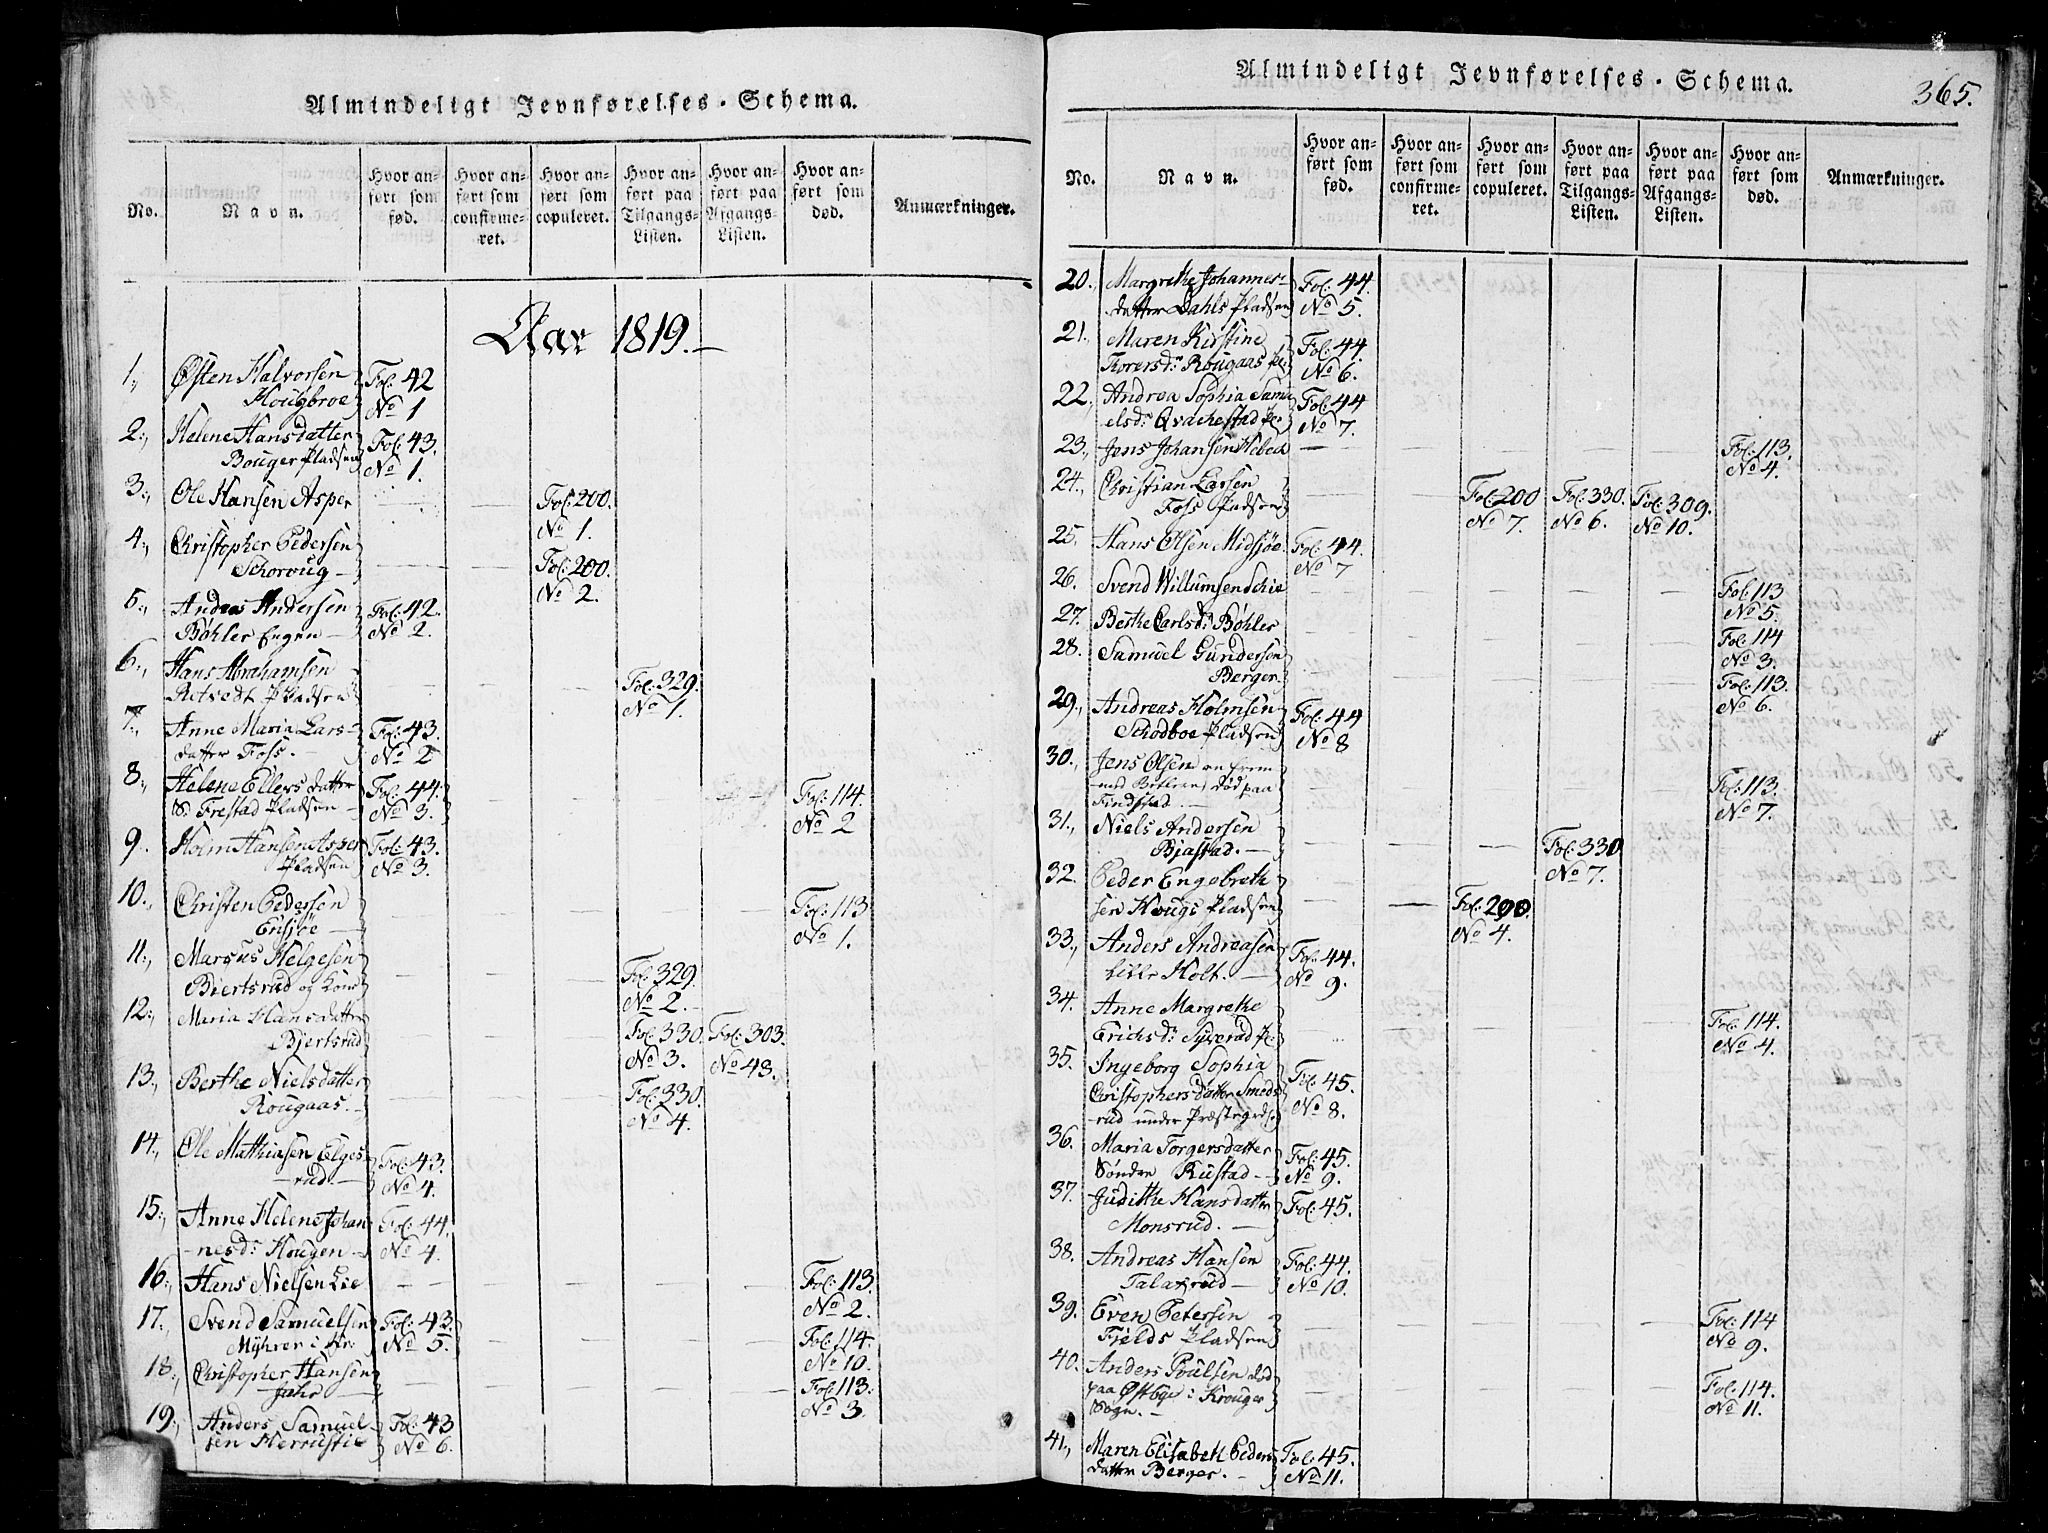 Almindeligt Jevnførelses-Schema.
No.
Navn.
Hvor anført som fød.
Hvor anført som confirmeret.
Hvor anført som copuleret.
Hvor anført paa Tilgangs-Listen.
Hvor anført paa Afgangs-Listen.
Hvor anført som død.
Anmærkninger.
Aar 1819.
1., Østen Halvorsen Fol: 42
Hougbroe No 1
2., Helene Hansdatter Fol: 43.
Bouger Pladsen No 1.
3., Ole Hansen Asper — — Fol: 200.
No 1.
4., Christopher Pedersen
Schoroug — — — Fol: 200.
No 2.
5., Andreas Andersen Fol: 42.
Bøhler Engen — No 2.
6., Hans Abrahamsen
Retvedt Pladsen — — — Fol: 329.
No 1.
7., Anne Maria Lars- Fol: 43.
datter Foss. — No 2
8., Helene Ellers datter Fol: 44. — — — — Fol: 114.
S: Frestad Pladsen — No 3. No 2
9. Holm Hansen Asper Fol: 43.
Pladsen No 3.
10., Christen Pedersen — — — — — Fol: 113
Ensjøe — No 1.
11., Marcus Helgesen — — — Fol: 329.
Biertsrud og Kone No 2. —
12., Maria Hansdatter — — — Fol: 330. Fol: 303.
Bjertsrud No 3. No 43.
13., Berthe Nielsdatter — — — Fol: 330.
Rougaas. — No 4.
14., Ole Mathiasen Elges- Fol: 43.
rud. — No 4.
15., Anne Helene Johan Fol: 44.
-nesd: Hougen — No 4.
16., Hans Nielsen Lie — — — — — Fol: 113.
No 2.
17., Svend Samuelsen Fol: 43. — — — — Fol: 114.
Myhrer i Kr: No 5. No 10.
18., Christopher Hansen — — — — — Fol: 113.
Jahr — No 3.
19., Anders Samuel Fol: 43
sen Herrustie No 6.
Almindeligt Jevnførelses-Schema.
365.
No.
Navn.
Hvor anført som fød.
Hvor anført som confirmeret.
Hvor anført som copuleret.
Hvor anført paa Tilgangs-Listen.
Hvor anført paa Afgangs-Listen.
Hvor anført som død.
Anmærkninger.
20., Margrethe Johannes- Fol: 44.
datter Dahls Pladsen No 5.
21., Maren Kirstine Fol: 44.
Torersd: Rougaas Pl: No 6.
22., Andrea Sophia Samu Fol: 44
elsd: Qvachestad Pl: No 7.
23., Jens Johansen Hebed — Fol: 113.
No 4.
24., Christian Larsen — — Fol: 200 Fol: 330. Fol: 309.
Foss Pladsen No 7. No 6. No 10.
25. Hans Olsen Midsjøe. Fol: 44.
No 7
26. Svend Willumsen Schie — — — — — Fol: 113
No 5.
27. Berthe Carlsd: Bøhler — — — — — Fol: 114
No 3.
28. Samuel Gundersen — — — — — Fol: 113.
Berger. No 6.
29., Andreas Holmsen Fol: 44
Schodboe Pladsen No 8
30., Jens Olsen en frem
med Betlere, død paa — — — — — Fol: 113.
Findstad. — No 7.
31., Niels Andersen
Bjastad. — — — — Fol: 330
No 7.
32. Peder Engebreth
sen Hougs Pladsen — — Fol: 200.
No 4.
33., Anders Andreasen Fol: 44.
Lille Holt. — No 9.
34. Anne Margrethe — — — — — Fol: 114.
Erichsd: Syverud Pl: No 4.
35. Ingeborg Sophia Fol: 45.
Christophersdatter Smeds- No 8.
rud under Præstegrd:
36. Maria Torgersdatter Fol: 45.
Søndre Rustad — No 9.
37. Judithe Hansdatter Fol: 45.
Monsrud. —
38. Andreas Hansen Fol: 44.
Talaxrud — No 10.
39. Even Petersen — — — — — Fol: 114
Fjelds Pladsen No 9.
40. Anders Poulsen død
paa Østbye i Krouger — — — — — Fol: 114.
Sogn. — No 11.
41., Maren Elisabeth Peders Fol: 45.
datter Berger. — No 11.